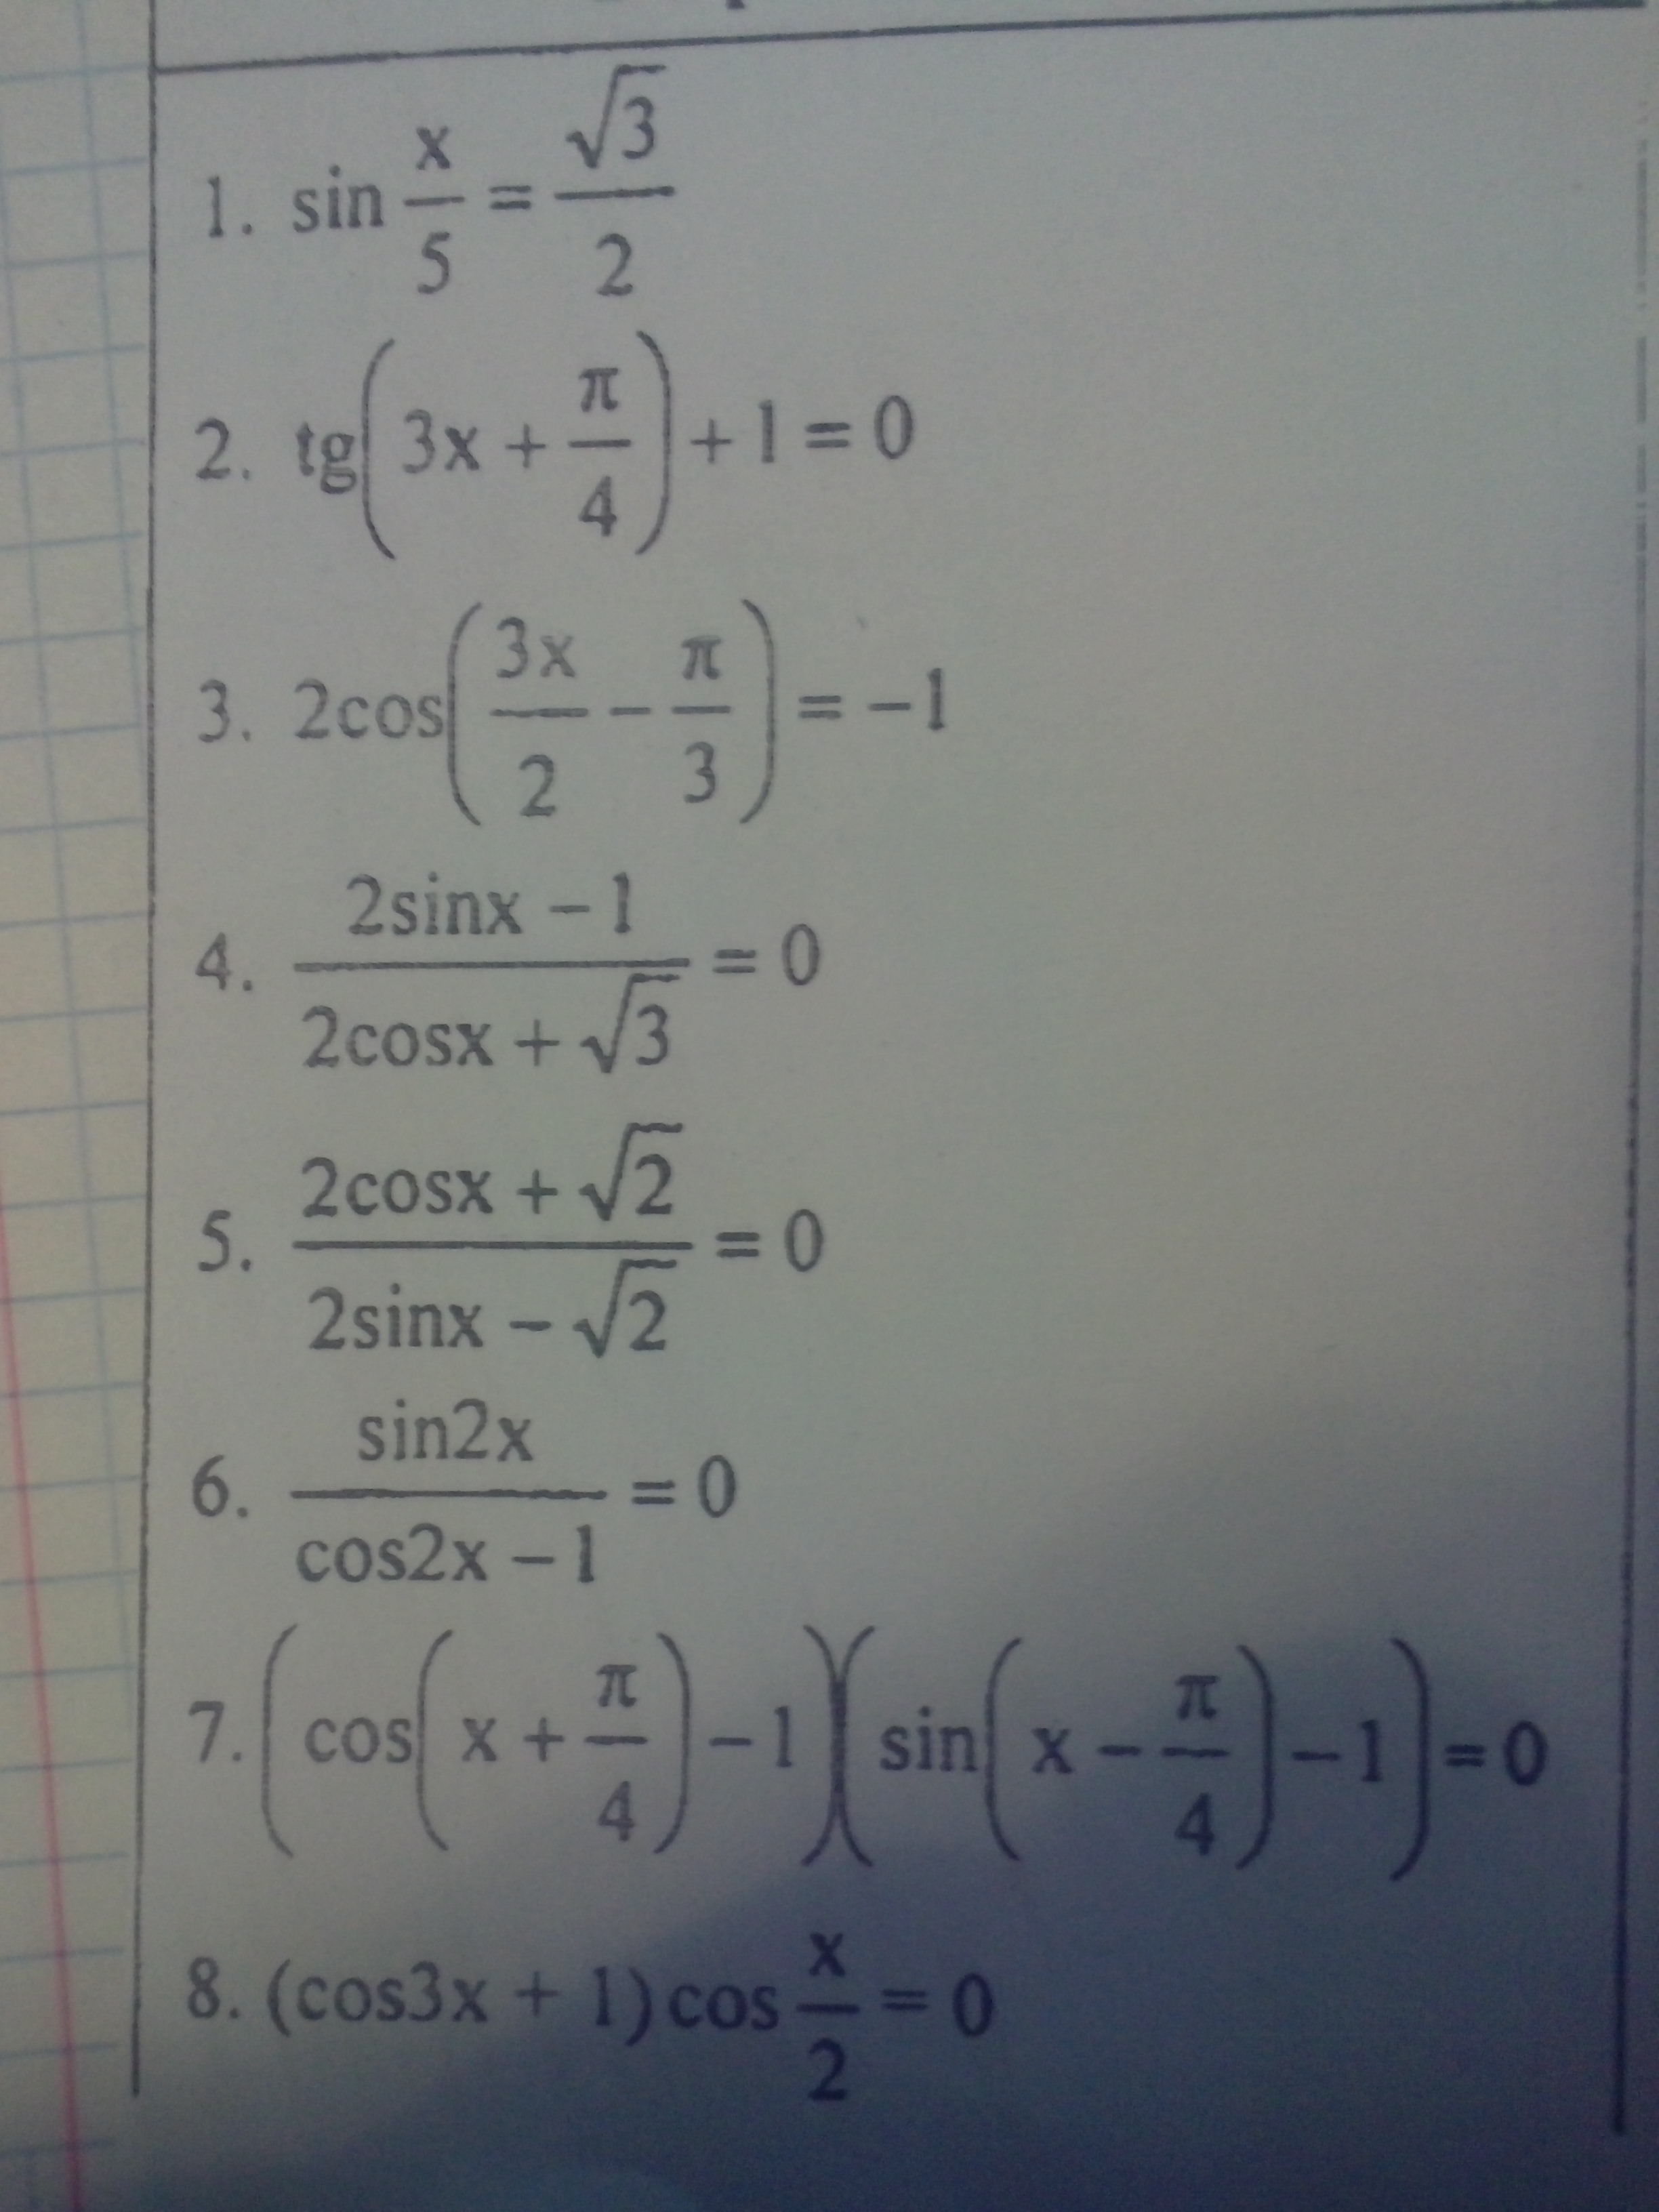 1. sin x/5 = √3/2
2. tg(3x + π/4) + 1 = 0
3. 2cos(3x/2 − π/3) = −1
4. (2sinx − 1)/(2cosx + √3) = 0
5. (2cosx + √2)/(2sinx − √2) = 0
6. sin2x/(cos2x − 1) = 0
7. (cos(x + π/4) − 1)(sin(x − π/4) − 1) = 0
8. (cos3x + 1)cos x/2 = 0